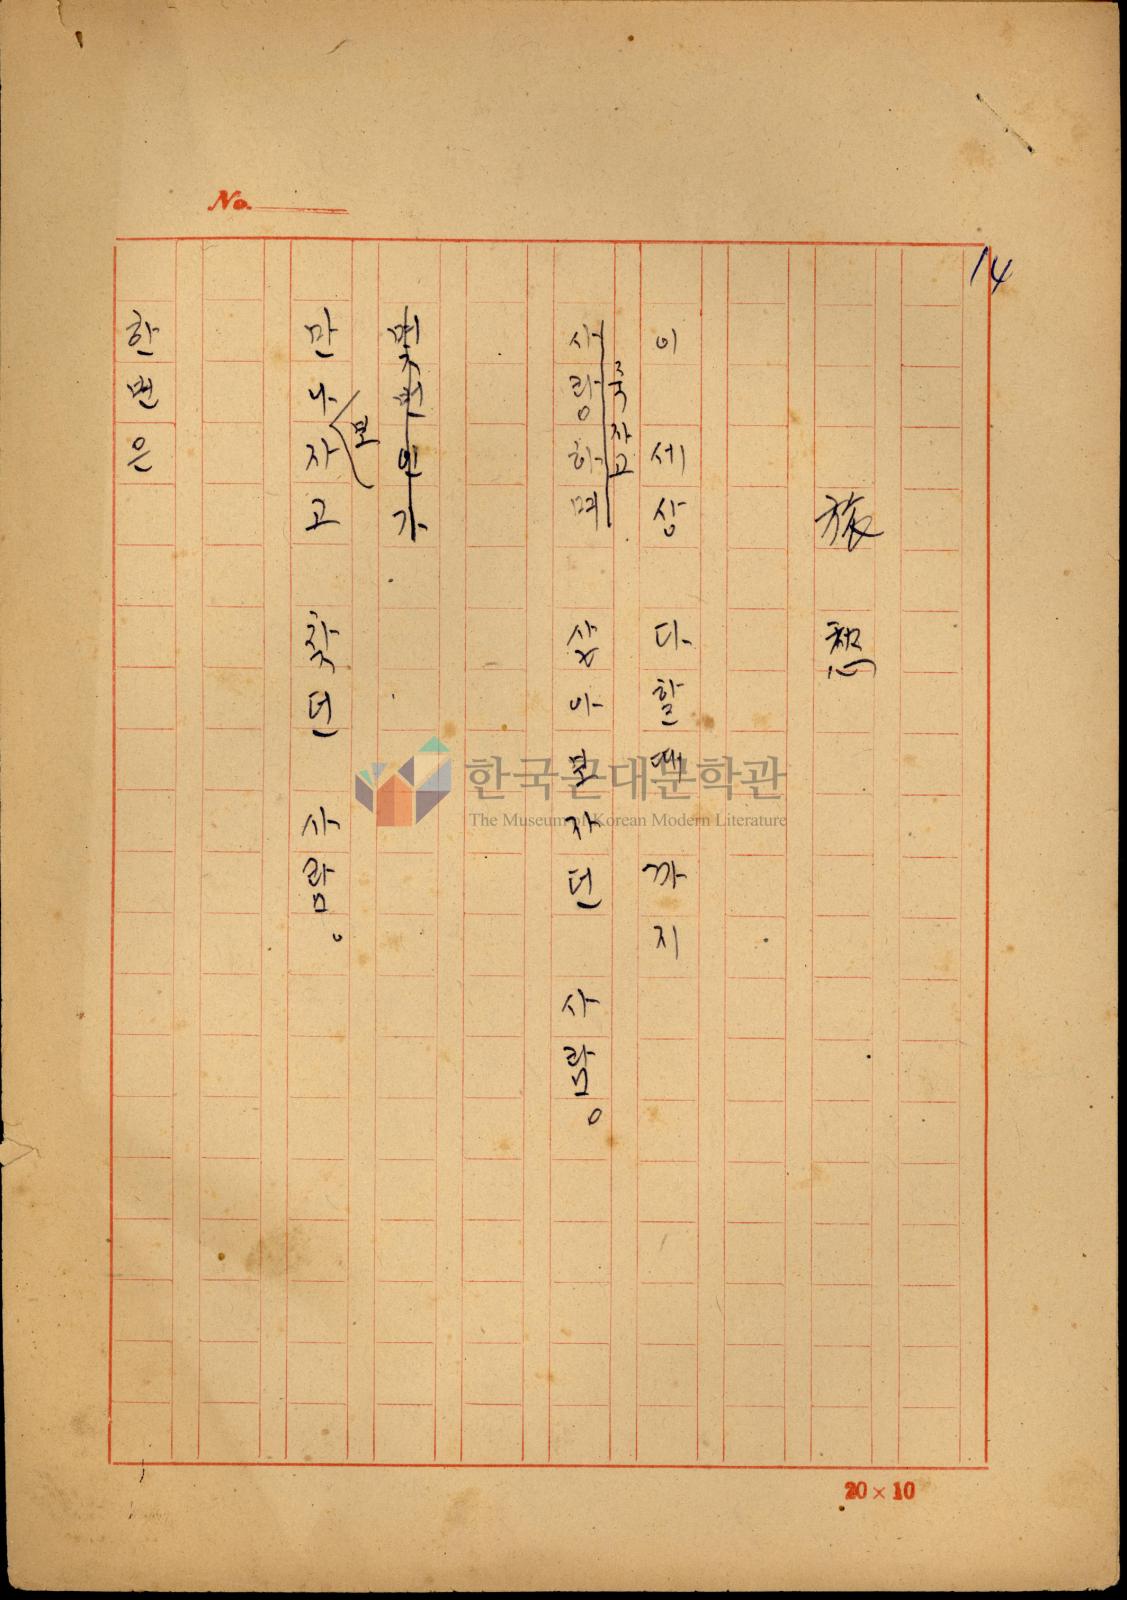 No.
14
旅愁
이 세상 다할때 까지
죽자고
사랑하며 살아보자던 사람。
몇번인가
보
만나자고 찾던 사람。
한번은
20 × 10
한국근대문학관
The Museum of Korean Modern Literature